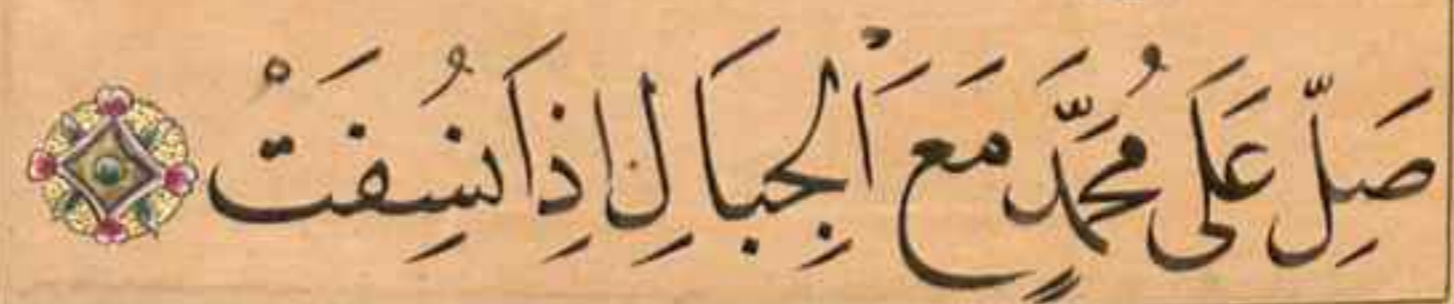 صَلِّ عَلَى مُحَمَّدٍ مَعَ اَلْجِبَالِ اِذَا نُسِفَتْ